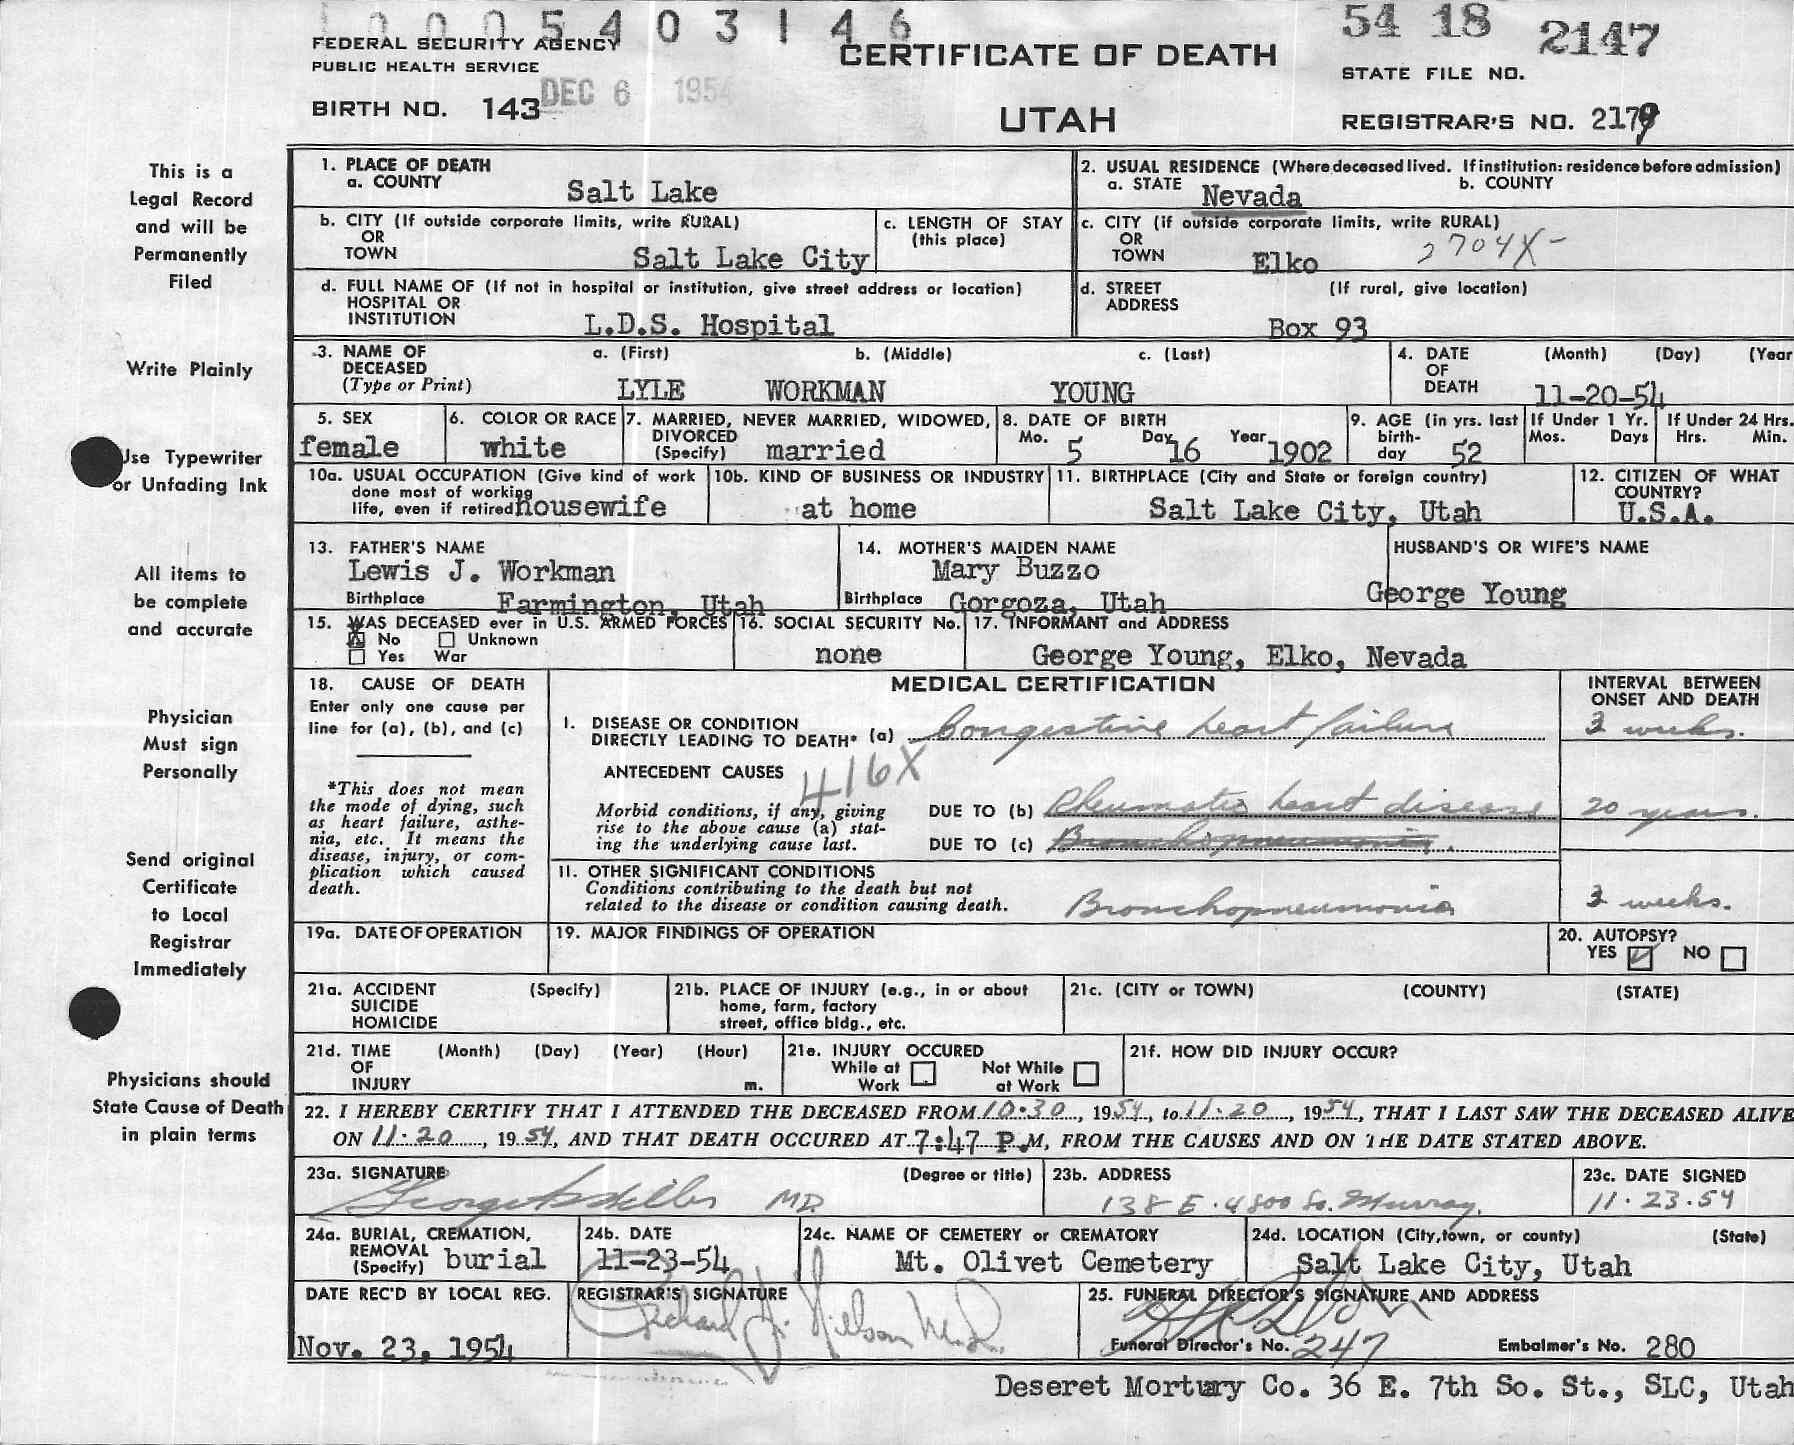 1 0 0 0 5 4 0 3 1 4 6
54 18 2147
FEDERAL SECURITY AGENCY
PUBLIC HEALTH SERVICE
CERTIFICATE OF DEATH
STATE FILE NO.
DEC 6 1954
BIRTH NO. 143
UTAH
REGISTRAR'S NO. 2179
This is a
Legal Record
and will be
Permanently
Filed
Write Plainly
Use Typewriter
or Unfading Ink
All items to
be complete
and accurate
Physician
Must sign
Personally
Send original
Certificate
to Local
Registrar
Immediately
Physicians should
State Cause of Death
in plain terms
1. PLACE OF DEATH
a. COUNTY
Salt Lake
2. USUAL RESIDENCE (Where deceased lived. If institution: residence before admission)
a. STATE Nevada b. COUNTY
b. CITY (If outside corporate limits, write RURAL)
OR
TOWN
Salt Lake City
c. LENGTH OF STAY
(this place)
c. CITY (if outside corporate limits, write RURAL)
OR
TOWN
Elko
2704X-
d. FULL NAME OF (If not in hospital or institution, give street address or location)
HOSPITAL OR
INSTITUTION
L.D.S. Hospital
d. STREET (If rural, give location)
ADDRESS
Box 93
3. NAME OF a. (First) b. (Middle) c. (Last)
DECEASED
(Type or Print)
LYLE WORKMAN YOUNG
4. DATE (Month) (Day) (Year
OF
DEATH 11-20-54
5. SEX
female
6. COLOR OR RACE
white
7. MARRIED, NEVER MARRIED, WIDOWED,
DIVORCED
(Specify) married
8. DATE OF BIRTH
Mo. 5 Day 16 Year 1902
9. AGE (in yrs. last
birth-
day 52
If Under 1 Yr.
Mos. Days
If Under 24 Hrs.
Hrs. Min.
10a. USUAL OCCUPATION (Give kind of work
done most of working
life, even if retired) housewife
10b. KIND OF BUSINESS OR INDUSTRY
at home
11. BIRTHPLACE (City and State or foreign country)
Salt Lake City, Utah
12. CITIZEN OF WHAT
COUNTRY?
U.S.A.
13. FATHER'S NAME
Lewis J. Workman
Birthplace Farmington, Utah
14. MOTHER'S MAIDEN NAME
Mary Buzzo
Birthplace Gorgoza, Utah
HUSBAND'S OR WIFE'S NAME
George Young
15. WAS DECEASED ever in U.S. ARMED FORCES
X No Unknown
Yes War
16. SOCIAL SECURITY No.
none
17. INFORMANT and ADDRESS
George Young, Elko, Nevada
18. CAUSE OF DEATH
Enter only one cause per
line for (a), (b), and (c)
*This does not mean
the mode of dying, such
as heart failure, asthe-
nia, etc. It means the
disease, injury, or com-
plication which caused
death.
MEDICAL CERTIFICATION
INTERVAL BETWEEN
ONSET AND DEATH
I. DISEASE OR CONDITION
DIRECTLY LEADING TO DEATH* (a) Congestive heart failure
3 weeks.
ANTECEDENT CAUSES
416X
Morbid conditions, if any, giving
rise to the above cause (a) stat-
ing the underlying cause last.
DUE TO (b) Rheumatic heart disease
20 years.
DUE TO (c) Bronchopneumonia.
11. OTHER SIGNIFICANT CONDITIONS
Conditions contributing to the death but not
related to the disease or condition causing death.
Bronchopneumonia
3 weeks.
19a. DATE OF OPERATION
19. MAJOR FINDINGS OF OPERATION
20. AUTOPSY?
YES NO
21a. ACCIDENT (Specify)
SUICIDE
HOMICIDE
21b. PLACE OF INJURY (e.g., in or about
home, farm, factory
street, office bldg., etc.
21c. (CITY or TOWN) (COUNTY) (STATE)
21d. TIME (Month) (Day) (Year) (Hour)
OF
INJURY m.
21e. INJURY OCCURED
While at Not While
Work at Work
21f. HOW DID INJURY OCCUR?
22. I HEREBY CERTIFY THAT I ATTENDED THE DECEASED FROM 10.30, 1954, to 11.20, 1954, THAT I LAST SAW THE DECEASED ALIVE
ON 11.20, 1954, AND THAT DEATH OCCURED AT 7:47 P.M, FROM THE CAUSES AND ON THE DATE STATED ABOVE.
23a. SIGNATURE (Degree or title)
George MD.
23b. ADDRESS
138 E. 4800 So. Murray.
23c. DATE SIGNED
11.23.54
24a. BURIAL, CREMATION,
REMOVAL
(Specify) burial
24b. DATE
11-23-54
24c. NAME OF CEMETERY or CREMATORY
Mt. Olivet Cemetery
24d. LOCATION (City,town, or county) (State)
Salt Lake City, Utah
DATE REC'D BY LOCAL REG.
Nov. 23, 1954
REGISTRAR'S SIGNATURE
Richard Nielson M.D.
25. FUNERAL DIRECTOR'S SIGNATURE AND ADDRESS
Funeral Director's No. 247 Embalmer's No. 280
Deseret Mortuary Co. 36 E. 7th So. St., SLC, Utah